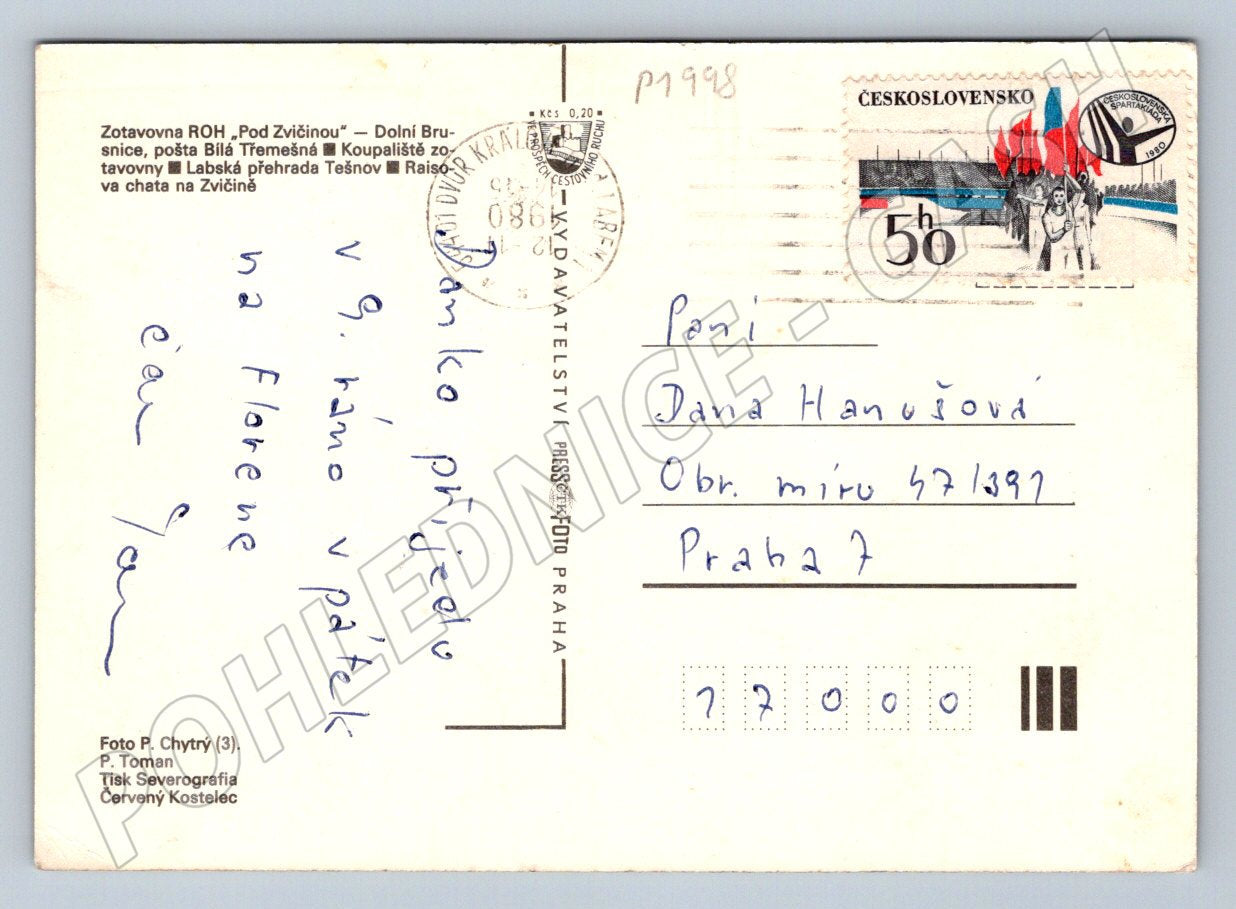 P1998
Zotavovna ROH „Pod Zvičinou“ — Dolní Bru-
snice, pošta Bílá Třemešná ■ Koupaliště zo-
tavovny ■ Labská přehrada Tešnov ■ Raiso-
va chata na Zvičině
Kčs 0,20
VE PROSPĚCH CESTOVNÍHO RUCHU
DVŮR KRÁLO
ČESKOSLOVENSKO
ČESKOSLOVENSKÁ
SPARTAKIÁDA
1980
50h
Danko přijedu
v 9. ráno v pátek
na Florenc
Jan
VYDAVATELSTVÍ PRESSFOTO PRAHA
ČTK
Paní
Dana Hanušová
Obr. míru 47/391
Praha 7
17000
Foto P. Chytrý (3).
P. Toman
Tisk Severografia
Červený Kostelec
POHLEDNICE - CZ